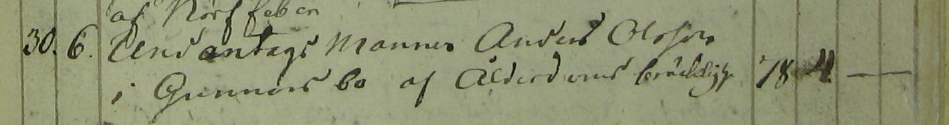 af Nerf feber
30. 6. Undantags Mannen Anders Olsson
i Gunnarsbo af Ålderdoms bräcklighet 78 4 —